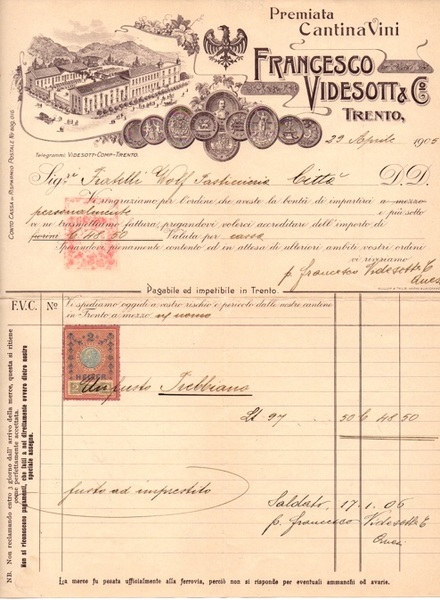 Premiata
Cantina Vini
FRANCESCO
VIDESOTT & Cio
TRENTO,
23 Aprile 1905
Telegrammi: VIDESOTT-COMP-TRENTO.
CONTO CASSA DI RISPARMIO POSTALE No 809.016
Sig.re Fratelli Wolf Pasticceria Città D. D.
Vi ringraziamo per l'ordine che aveste la bontà di impartirci a mezzo
personalmente e più sotto
ve ne trasmettiamo fattura, pregandovi volerci accreditare dell'importo di
fiorini C. 48.50 Valuta per cassa
Sperandovi pienamente contento ed in attesa di ulteriori ambiti vostri ordini
vi riveriamo
p. Francesco Videsott & C
Pagabile ed impetibile in Trento.
F. V. C.
No
Vi spediamo oggidì a vostro rischio e pericolo dalle nostre cantine
in Trento a mezzo uomo
HELLER
Un fusto Trebbiano
Lt 97 50 C 48.50
fusto ad imprestito
Saldato, 17.1.06
p. Francesco Videsott & C
NB. Non reclamando entro 3 giorni dall'arrivo della merce, questa si ritiene
come perfettamente accettata.
Non si riconoscono pagamenti, che fatti a noi direttamente ovvero dietro nostre
speciale assegno.
La merce fu pesata ufficialmente alla ferrovia, perciò non si risponde per eventuali ammanchi od avarie.